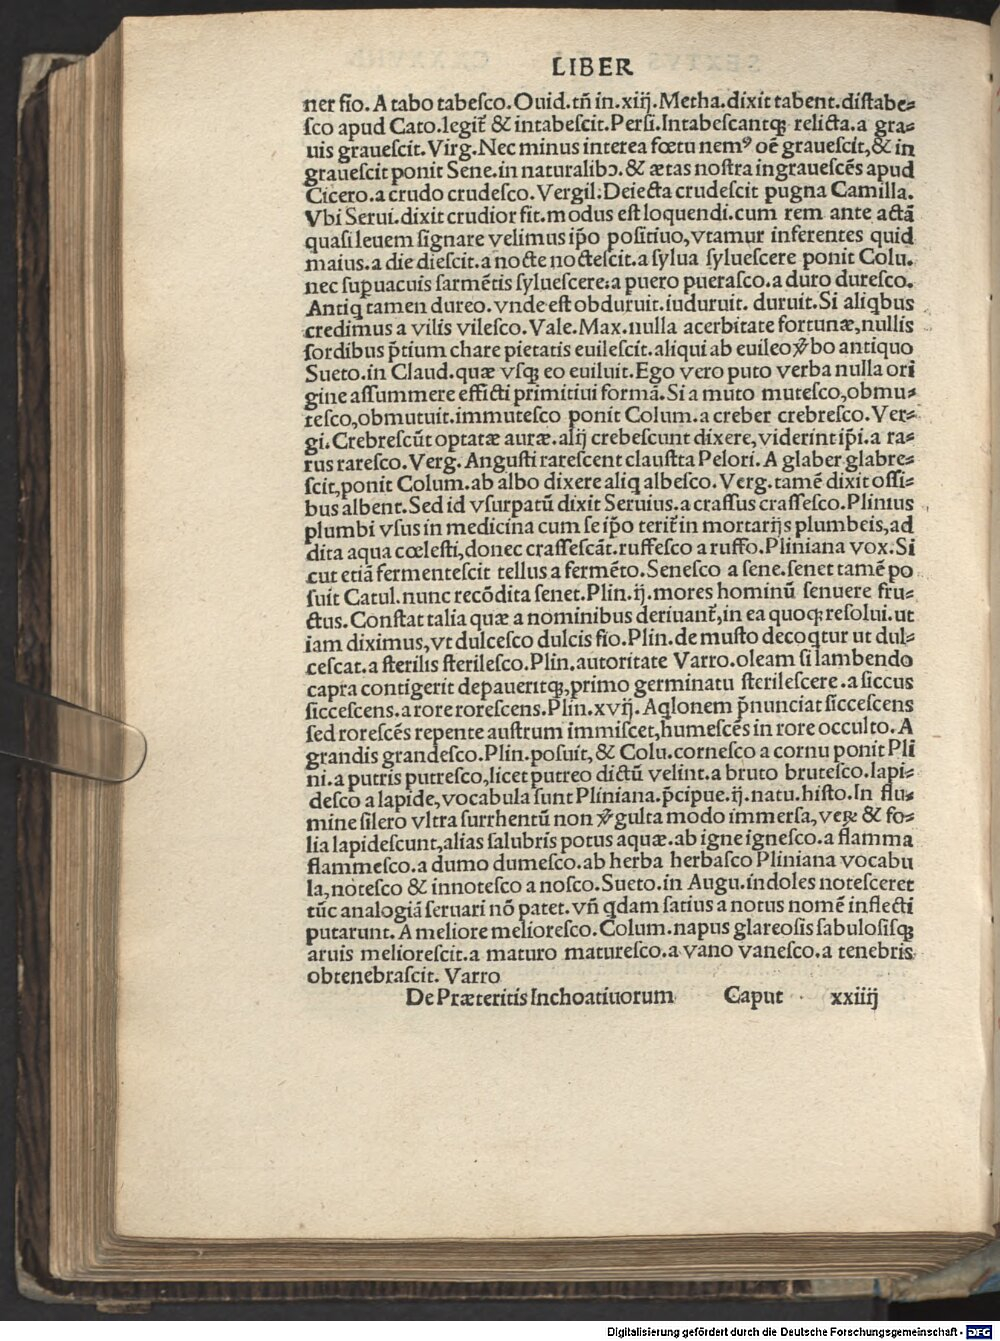 LIBER
ner fio. A tabo tabeſco. Ouid. tñ in. xiij. Metha. dixit tabent. diſtabe⸗
ſco apud Cato. legit̃ & intabeſcit. Perſi. Intabeſcantqꝫ relicta. a gra⸗
uis graueſcit. Virg. Nec minus interea fœtu nemꝰ oē graueſcit, & in
graueſcit ponit Sene. in naturalibꝰ. & ætas noſtra ingraueſcēs apud
Cicero. a crudo crudeſco. Vergil: Deiecta crudeſcit pugna Camilla.
Vbi Serui. dixit crudior fit. modus eſt loquendi. cum rem ante actā
quaſi leuem ſignare velimus ip̄o poſitiuo, vtamur inferentes quid
maius. a die dieſcit. a nocte nocteſcit. a ſylua ſylueſcere ponit Colu.
nec ſupuacuis ſarmētis ſylueſcere: a puero pueraſco. a duro dureſco.
Antiq tamen dureo. vnde eſt obduruit. iuduruit. duruit. Si aliqbus
credimus a vilis vileſco. Vale. Max. nulla acerbitate fortunæ, nullis
ſordibus p̄tium chare pietatis euileſcit. aliqui ab euileo ꝟbo antiquo
Sueto. in Claud. quæ vſqꝫ eo euiluit. Ego vero puto verba nulla ori
gine aſſummere efficti primitiui formā. Si a muto muteſco, obmu⸗
teſco, obmutuit. immuteſco ponit Colum. a creber crebreſco. Ver⸗
gi. Crebreſcūt optatæ auræ. alij crebeſcunt dixere, viderint ip̄i. a ra⸗
rus rareſco. Verg. Anguſti rareſcent clauſtta Pelori. A glaber glabre⸗
ſcit, ponit Colum. ab albo dixere aliq albeſco. Verg. tamē dixit oſſi⸗
bus albent. Sed id vſurpatū dixit Seruius. a craſſus craſſeſco. Plinius
plumbi vſus in medicina cum ſe ip̄o terit̃ in mortarijs plumbeis, ad
dita aqua cœleſti, donec craſſeſcāt. ruffeſco a ruffo. Pliniana vox. Si
cut etiā fermenteſcit tellus a fermēto. Seneſco a sene. ſenet tamē po
ſuit Catul. nunc recōdita ſenet. Plin. ij. mores hominū ſenuere fru⸗
ctus. Conſtat talia quæ a nominibus deriuant̃, in ea quoqꝫ reſolui. ut
iam diximus, vt dulceſco dulcis fio. Plin. de muſto decoqtur ut dul⸗
ceſcat. a ſterilis ſterileſco. Plin. autoritate Varro. oleam ſi lambendo
capra contigerit depaueritqꝫ, primo germinatu ſterileſcere. a ſiccus
ſicceſcens. a rore roreſcens. Plin. xvij. Aqlonem p̄nunciat ſicceſcens
ſed roreſcēs repente auſtrum immiſcet, humeſcēs in rore occulto. A
grandis grandeſco. Plin. poſuit, & Colu. corneſco a cornu ponit Pli
ni. a putris putreſco, licet putreo dictū velint. a bruto bruteſco. lapi⸗
deſco a lapide, vocabula ſunt Pliniana. p̄cipue. ij. natu. hiſto. In flu⸗
mine ſilero vltra ſurrhentū non ꝟgulta modo immerſa, veꝝ & fo⸗
lia lapideſcunt, alias ſalubris potus aquæ. ab igne igneſco. a flamma
flammeſco. a dumo dumeſco. ab herba herbaſco Pliniana vocabu
la, noteſco & innoteſco a noſco. Sueto. in Augu. indoles noteſceret
tūc analogiā ſeruari nō patet. vñ qdam ſatius a notus nomē inflecti
putarunt. A meliore melioreſco. Colum. napus glareoſis ſabuloſiſqꝫ
aruis melioreſcit. a maturo matureſco. a vano vaneſco. a tenebris
obtenebraſcit. Varro
De Præteritis Inchoatiuorum Caput xxiiij
Digitalisierung gefördert durch die Deutsche Forschungsgemeinschaft - DFG